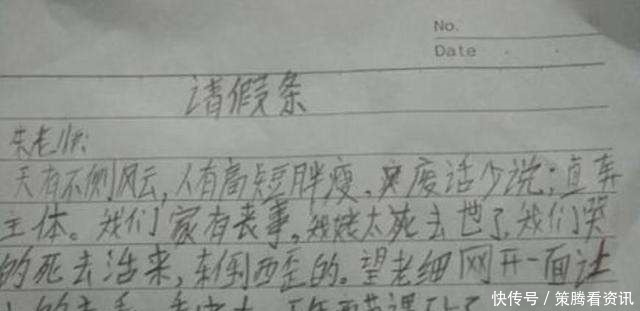 No.
Date
请假条
朱老师:
天有不侧风云,人有高短胖瘦,废话少说;直奔
主体。我们家有丧事,我姥太死去世了,我们哭
的死去活来,东倒西歪的。望老细网开一面让
快传号／策腾看资讯